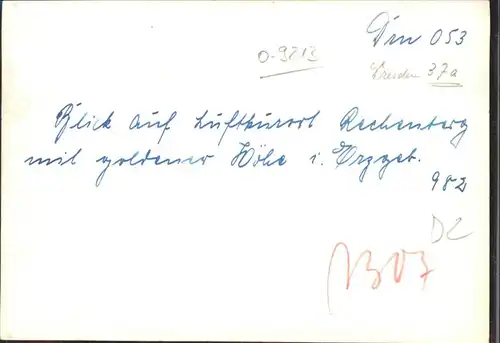 Dm 053
O-9213
Dresden 37a
Blick auf Luftkurort Rechenberg
mit goldener Höhe i. Erzgeb.
982
DZ